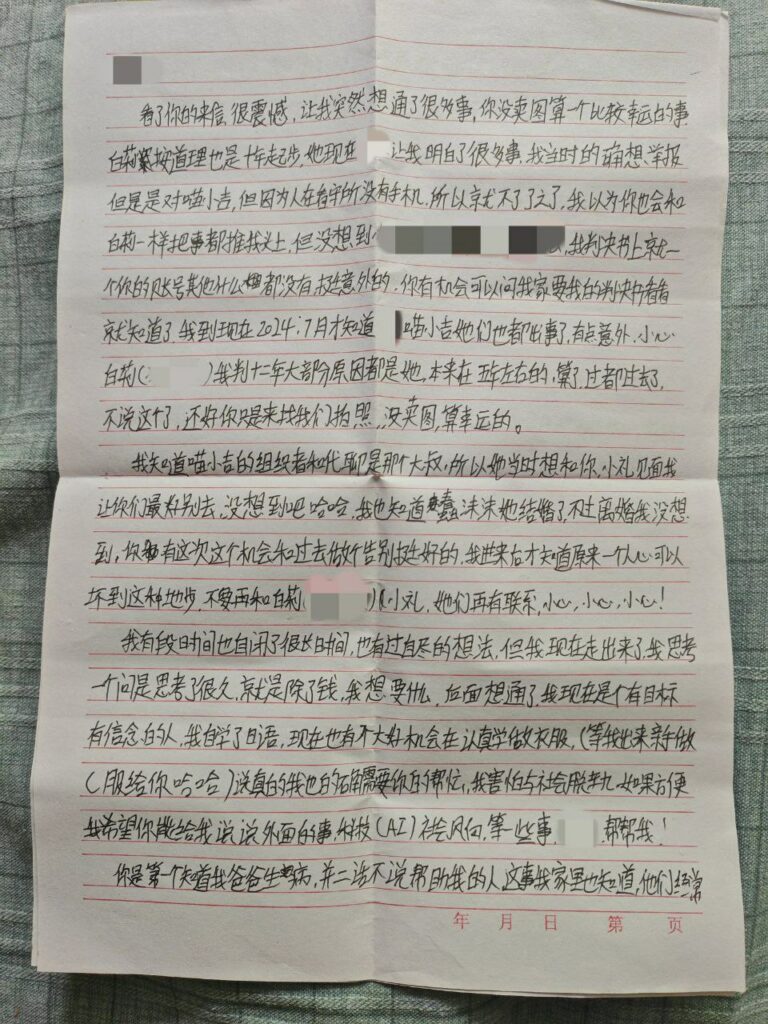 看了你的来信很震憾，让我突然想通了很多事，你没卖图算一个比较幸运的事
白莉 按道理也是十年起步，她现在 让我明白了很多事，我当时的确想举报
但是是对喵小吉，但因为人在看守所没有手机，所以就不了了之了，我以为你也会和
白莉一样把事都推我头上，但没想到 我判决书上就一
个你的账号其他什么都没有，挺意外的，你有机会可以问我家要我的判决书看看
就知道了，我到现在2024，7月才知道 喵小吉她们也都出事了，有点意外，小心
白莉( )我判十二年大部分原因都是她，本来在五年左右的，算了，过都过去了，
不说这个了，还好你只是来找我们拍照，没卖图，算幸运的。
我知道喵小吉的组织者和代聊是那个大叔，所以她当时想和你，小礼见面我
让你们最好别去，没想到吧哈哈，我也知道蠢沫沫她结婚了，不过离婚我没想
到，你 有这次这个机会和过去做个告别挺好的，我进来后才知道原来一个人心可以
坏到这种地步，不要再和白莉( )小礼，她们再有联系，小心，小心，小心！
我有段时间也自闭了很长时间，也有过自尽的想法，但我现在走出来了，我思考
一个问题思考了很久，就是除了钱，我想要什么，后面想通了，我现在是个有目标
有信念的人，我自学了日语，现在也有个大好机会在认真学做衣服，(等我出来亲手做
C服给你哈哈)说真的我也的确需要你的帮忙，我害怕与社会脱轨，如果方便
我希望你能给我说说外面的事，科技(AI)社会风向，等一些事， 帮帮我！
你是第一个知道我爸爸生病，并二话不说帮助我的人，这事我家里也知道，他们经常
年 月 日 第 页